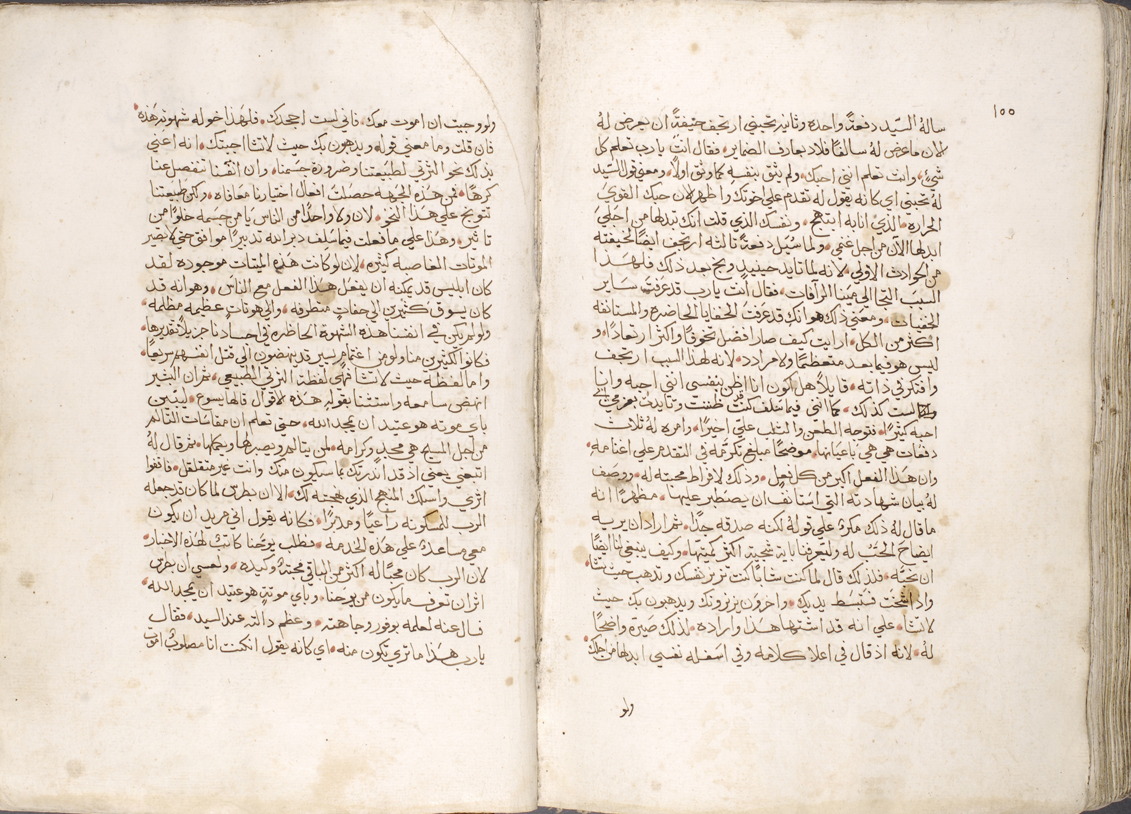 ١٥٥
سالهُ السيّد دفعةً واحده وثانيه تحبني ارتجف خيفةً ان يعرض لهُ
لان ما عرض لهُ سالفًا فلاد بعارف الضماير• فقال انت يارب تعلم كل
شيءٍ• وانت تعلم انني احبك• ولم يثق بنفسه كما وثق اولًا• ومعني قول السيّد
لهُ تحبني اي كانه يقول له تقدم علي اخوتك واظهر الان حبك القوي
الحراره• الذي انا به ابتهج• ونفسك الذي قلت انك تبدلها من اجلي
ابدلها الان من اجل غنمي• ولما سُيل دفعةً ثالثه ارتجف ايضًا لخيفته
من الحوادث الاولي• لانه لما تايد حينيدٍ وبخ بعد ذلك فلهذا
السبب التجا الي مَيناء الرافات• فقال انت يارب قد عرفت ساير
الخفيات• ومعني ذلك هو انك قد عرفت الخفايا الحاضره والمستانفه
اكثر من الكل• ارايت كيف صار افضل تخوفًا واكثر ارتعادًا• و
ليس هو فيما بعد متعظمًا ولا مرادد• لانه لهذا السبب ارتجف
وافتكر في ذاته• قايلًا هل يكون انا اظن بنفسي انني احبه وانا
لست كذلك• كما انني فيما سلف كنت ظننت وتايدت بعزمي اني
احبه كثيرًا• فتوجه الطعن والثلب علي اخيرًا• وامره لهُ ثلاث
دفعات هي هي باعيانها• موضحًا مبلغ تكرمه في التقدم علي اغنامه•
وان هذا الفعل اكبر من كل فعل• وذلك لافراط محبته له• ووصف
لهُ بيان شهادته التي استانف ان يصطبر عليها• مظهرًا انه
ما قال لهُ ذلك منكرًا علي قوله لكنه صدقه جدًا• ثم اراد ان يريه
ايضاح الحُب له وليعرفنا باية سجية اكثر كميتها• وكيف ينبغي لنا ايضًا
ان نحبّه• فلذلك قال لما كنت شابًا كنت تزنر نفسك وتذهب حيث تشا•
واذا شخت فتبسط يديك• واخرون يزنرونك ويذهبون بك حيث
لا تشا• علي انه قد اشتها هذا واراده• لذلك صيّره واضحًا
لهُ• لانه اذ قال في اعلا كلامه وفي اسفله نفسي ابدلها من اجلك
ولو
ولو وجبت ان اموت معك• فاني لست اجحدك• فلهذا خوله شهوته هذه•
فان قلت وما معني قوله ويذهبون بك حيث لا تشا اجبتك• انه اعني
بذلك نحو الترقي لطبيعتنا وضرورة جسمنا• وان انفسنا تنفصل عنا
كرهًا• فمن هذه الجهه حصلت افعال اختيارنا معافاه• ولكن طبيعتنا
تتوبخ علي هذا النحو• لان ولا واحدًا من الناس يا من جسمه خلوًا من
تاثر• وهذا علي ما فعلت فيما سلف دبر الله تدبيرًا موافق حتي لا تصير
الموتات الغاصبه كثيره• لان لو كانت هذه الميتات موجوده لقد
كان ابليس قد يمكنه ان يفعل هذا الفعل مع الناس• وهو انه قد
كان يسوق كثيرين الي حفات متطرفه• والي هوتات عظيمه مظلمه•
ولو لم يكن في انفسنا هذه الشهوة الحاظره في اجساد ناجز بلا تقديرها
فكانوا الكثيرين منا ولو من اغتمام يسير قد ينهضون الي قتل انفسهم سريعًا•
واما لفظة حيث لا تشا فهي لفظة الترقي الطبيعي• ثم ان البشير
انهض سامعه واستثنا بقوله هذه الاقوال قالها يسوع• ليبين
باي موته هو عتيد ان يمجد الله• حتي تعلم ان مقاسات التالم
من اجل المسيح هي مجد وكرامه• لمن يتالم ويصبر ها ويحملها• ثم قال لهُ
اتبعني يعني اذ قد انذرتك بما سيكون منك وانت غير متقلقل• فاقفوا
اثري واسلك المنهج الذي نهجته لك• الا ان بطرس لما كان قد جعله
الرب المسكونه راعيًا ومدبرًا• فكانه يقول اني مريد ان يكون
معي مساعدًا علي هذه الخدمه• فطلب يوحنا كاتب لهذه الاخبار•
لان الرب كان محبًا له اكثر من الباقي محبةً وكيده• ولعمري ان بطرس
اثر ان تعرف ما يكون من يوحنا• وباي موتةٍ هو عتيد ان يمجد الله•
فسال عنه لعلمه بوفور وجاهته• وعظم دالته عند السيد• فقال
يارب هذا ماتري تكون منه• اي كانه يقول ان كنت انا مصلوبًا اموت